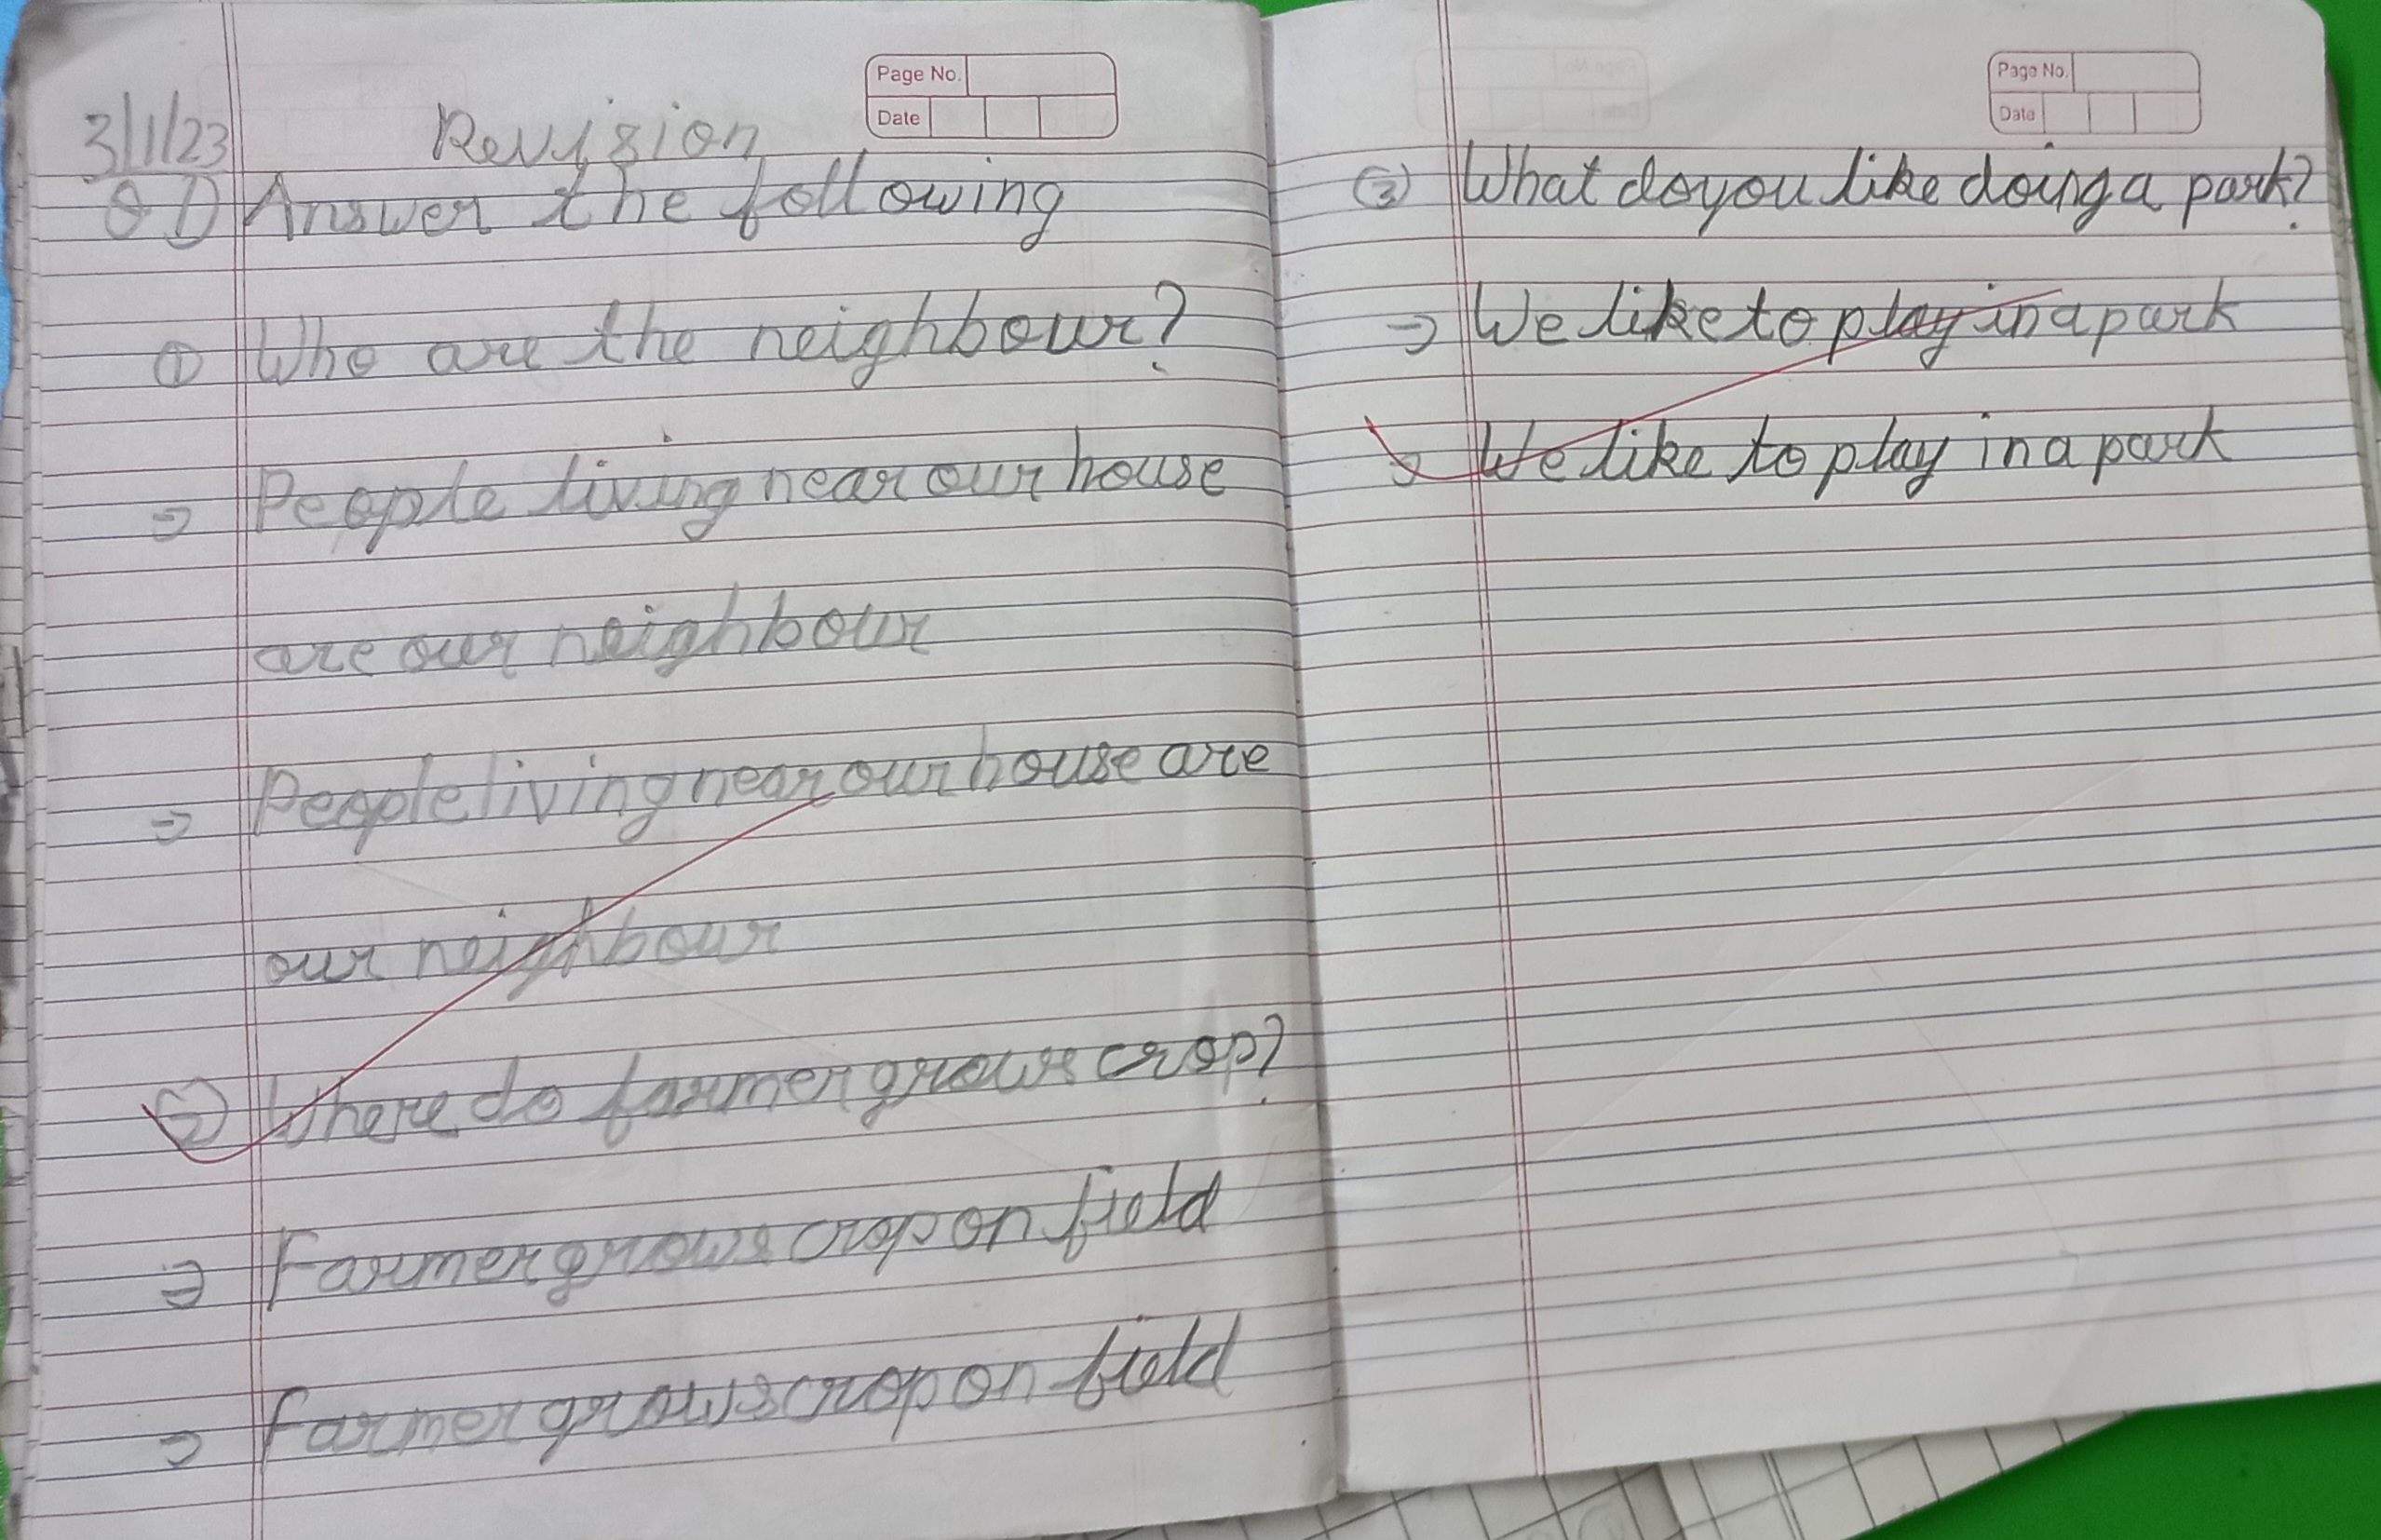 Page No.
Date
3/1/23 Revision
Q 1) Answer the following
① Who are the neighbour?
⇒ People living near our house
are our neighbour
⇒ People living near our house are
our neighbour
② Where do farmer grows crop?
⇒ Farmer grows crop on field
⇒ Farmer grows crop on field
Page No.
Date
③ What do you like doing a park?
⇒ We like to play in a park
⇒ We like to play in a park